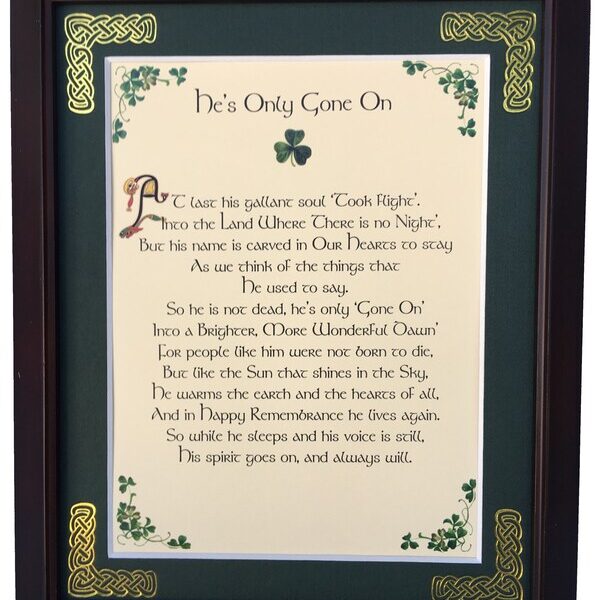 He's Only Gone On
At last his gallant soul 'Took Flight'.
Into the Land Where There is no Night',
But his name is carved in Our Hearts to stay
As we think of the things that
He used to say.
So he is not dead, he's only 'Gone On'
Into a Brighter, More Wonderful Dawn'
For people like him were not born to die,
But like the Sun that shines in the Sky,
He warms the earth and the hearts of all,
And in Happy Remembrance he lives again.
So while he sleeps and his voice is still,
His spirit goes on, and always will.